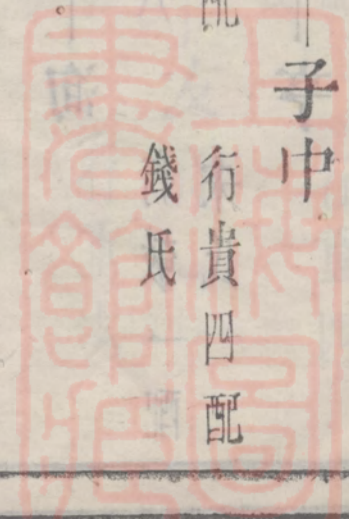 子中
行貴四配
錢氏